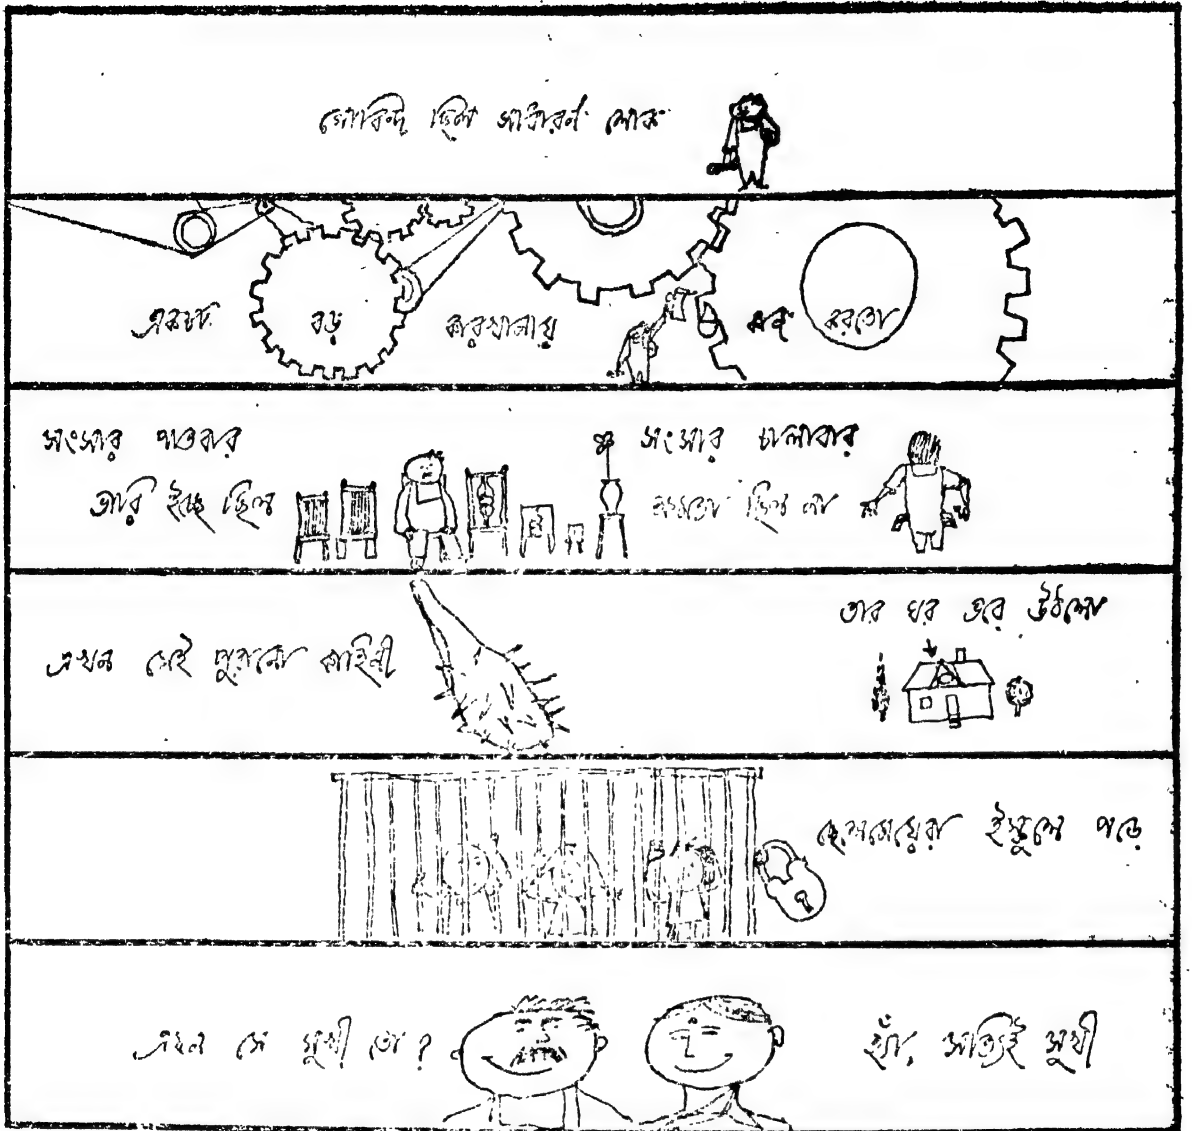 গোবিন্দ ছিল সাধারন লোক
একটা বড় কারখানায় কাজ করতো
সংসার পাতবার
ভারি ইচ্ছে ছিল
সংসার চালাবার
ক্ষমতা ছিল না
এখন সেই পুরানো কাহিনী
তার ঘর ভরে উঠলো
ছেলেমেয়েরা ইস্কুলে পড়ে
এখন সে সুখী তো?
হ্যাঁ, সত্যিই সুখী